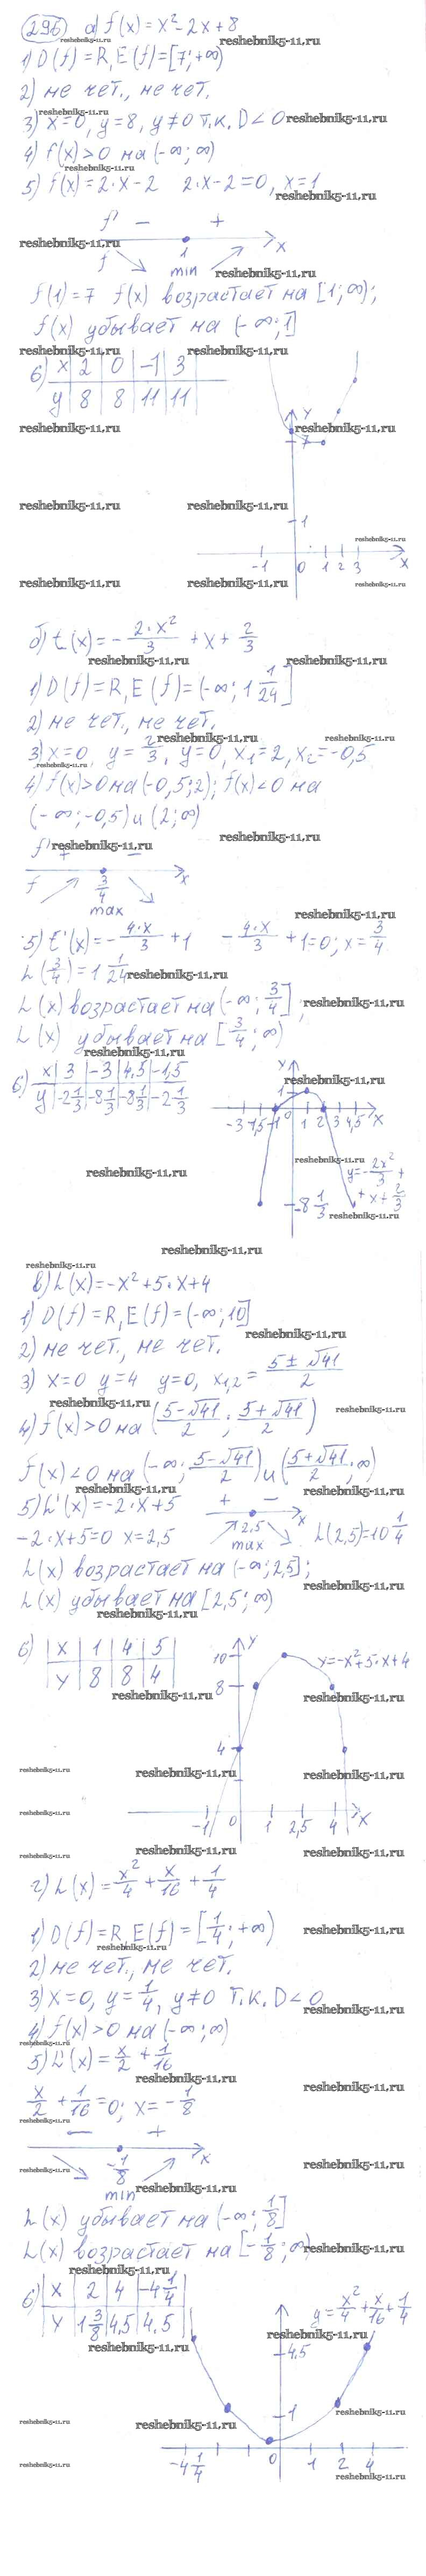 296 а) f(x)=x²-2x+8
1) D(f)=R, E(f)=[7;+∞)
2) не чет., не чет.
3) x=0, y=8, y≠0 т.к. D<0
4) f(x)>0 на (-∞;∞)
5) f(x)=2·x-2 2·x-2=0, x=1
f' - +
f 1 x
min
f(1)=7 f(x) возрастает на [1;∞);
f(x) убывает на (-∞;1]
6) x 2 0 -1 3
y 8 8 11 11
y
7
1
-1 0 1 2 3 x
б) t(x)=-2·x²/3+x+2/3
1) D(f)=R, E(f)=(-∞;1 1/24]
2) не чет., не чет.
3) x=0 y=2/3, y=0, x₁=2, x₂=-0,5
4) f(x)>0 на (-0,5;2); f(x)<0 на
(-∞;-0,5) и (2;∞)
f' + -
f 3/4 x
max
5) t'(x)=-4·x/3+1 -4·x/3+1=0; x=3/4
h(3/4)=1 1/24
h(x) возрастает на (-∞;3/4];
h(x) убывает на [3/4;∞)
6) x 3 -3 4,5 -1,5
y -2 1/3 -8 1/3 -8 1/3 -2 1/3
y
1
-3 -1,5 -1 0 1 2 3 4,5 x
y=-2x²/3+
+x+2/3
-8 1/3
в) h(x)=-x²+5·x+4
1) D(f)=R, E(f)=(-∞;10]
2) не чет., не чет.
3) x=0 y=4 y=0, x₁,₂=(5±√41)/2
4) f(x)>0 на ((5-√41)/2; (5+√41)/2)
f(x)<0 на (-∞; (5-√41)/2) и ((5+√41)/2; ∞)
5) h'(x)=-2·x+5 + - x
-2·x+5=0 x=2,5 2,5 max h(2,5)=10 1/4
h(x) возрастает на (-∞;2,5];
h(x) убывает на [2,5;∞)
6) x 1 4 5
y 8 8 4
y
10 y=-x²+5·x+4
8
4
-1 0 1 2,5 4 x
г) h(x)=x²/4+x/16+1/4
1) D(f)=R, E(f)=[1/4;+∞)
2) не чет., не чет.
3) x=0, y=1/4, y≠0 т.к. D<0
4) f(x)>0 на (-∞;∞)
5) h'(x)=x/2+1/16
x/2+1/16=0; x=-1/8
- +
-1/8 x
min
h(x) убывает на (-∞;1/8]
h(x) возрастает на [-1/8;∞)
6) x 2 4 -4 1/4
y 1 3/8 4,5 4,5
y=x²/4+x/16+1/4
4,5
1
-4 1/4 0 1 2 4
reshebnik5-11.ru